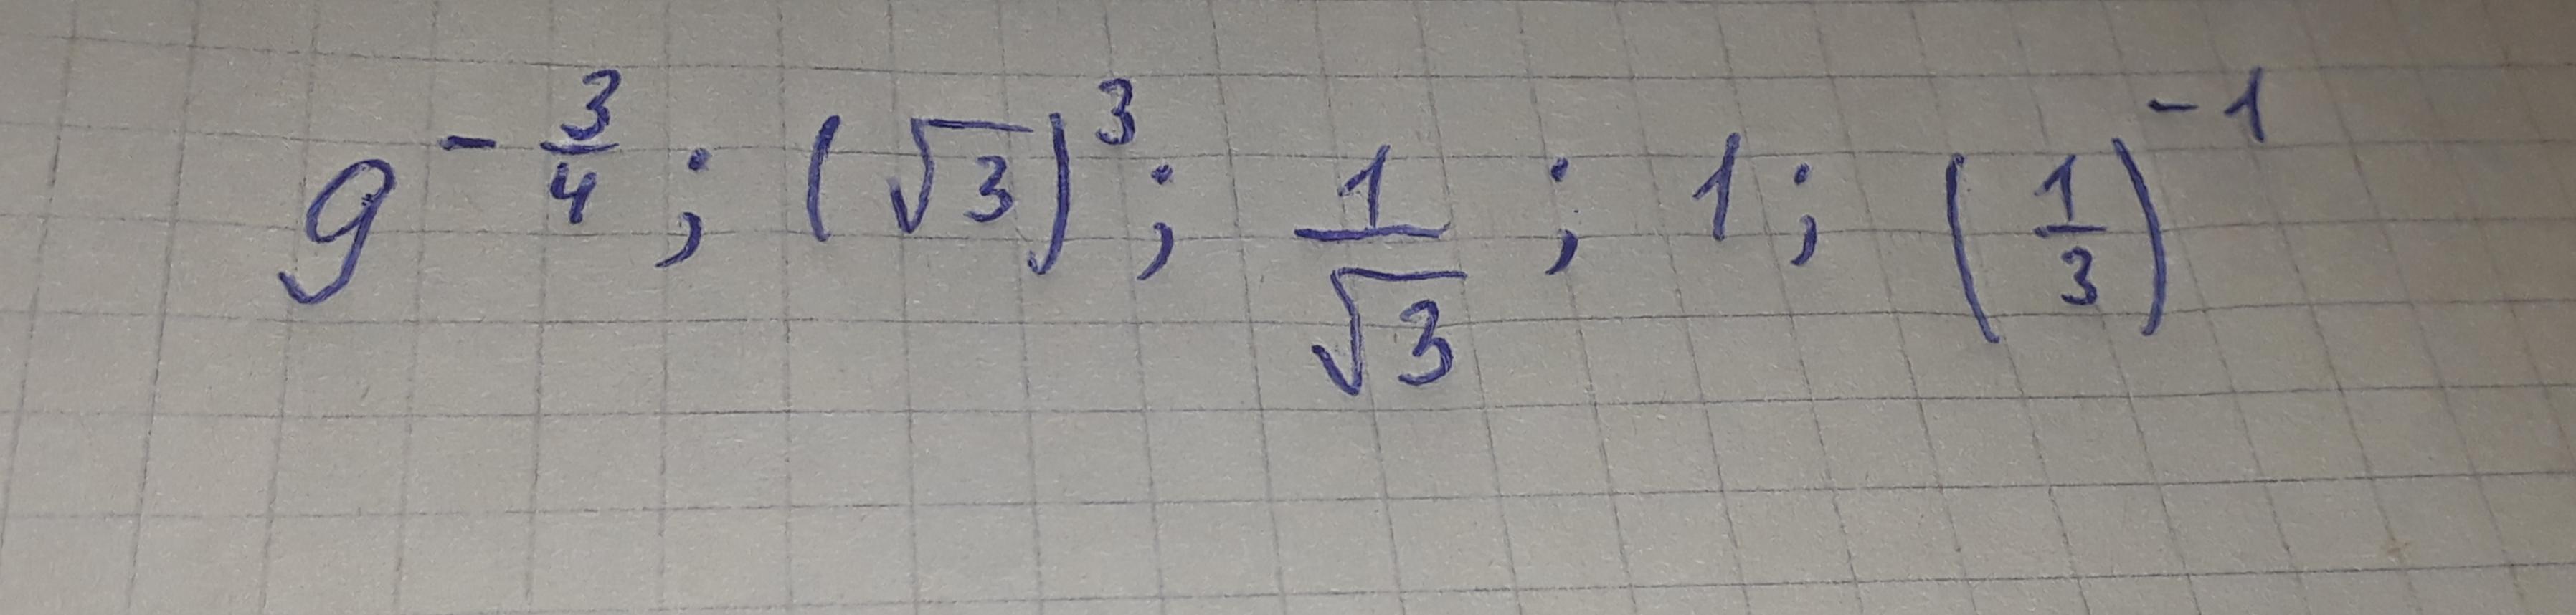 9^{-\frac{3}{4}}; (\sqrt{3})^3; \frac{1}{\sqrt{3}}; 1; (\frac{1}{3})^{-1}